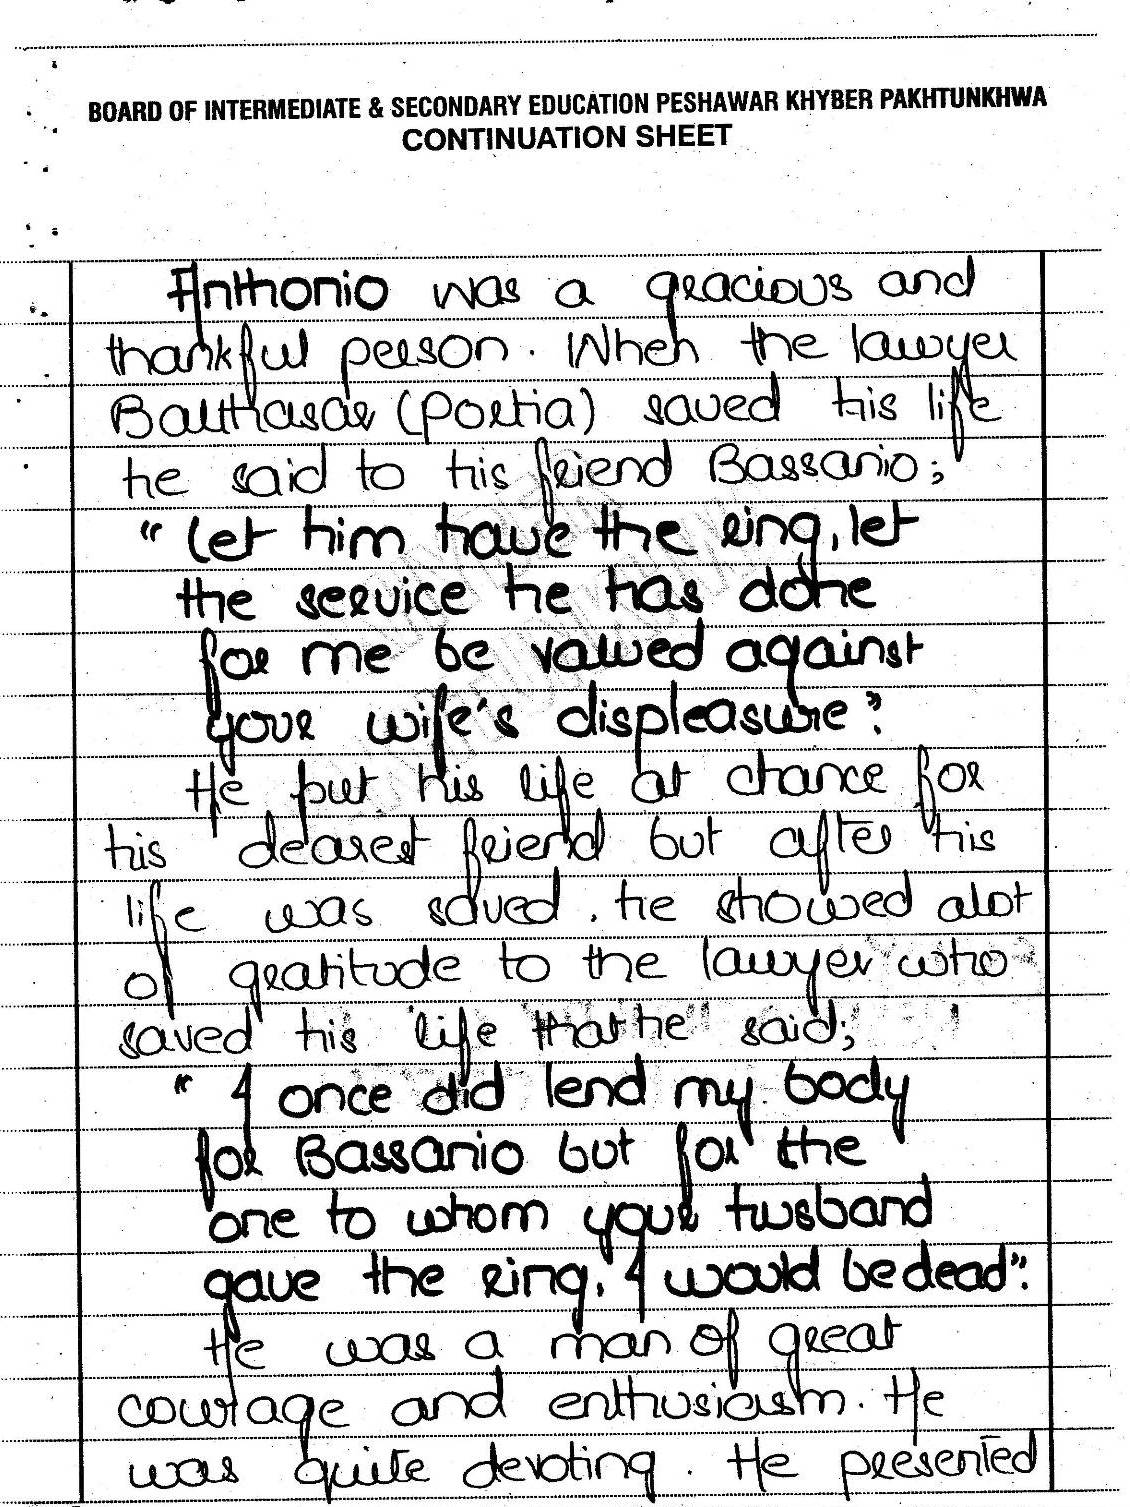 BOARD OF INTERMEDIATE & SECONDARY EDUCATION PESHAWAR KHYBER PAKHTUNKHWA
CONTINUATION SHEET
Anthonio was a gracious and
thankful person. When the lawyer
Balthasar (Portia) saved his life
he said to his friend Bassanio;
" Let him have the ring, let
the service he has done
for me be valued against
your wife's displeasure".
He put his life at chance for
his dearest friend but after his
life was saved. he showed alot
of gratitude to the lawyer who
saved his life that he said;
" I once did lend my body
for Bassanio but for the
one to whom your husband
gave the ring, I would be dead".
He was a man of great
courage and enthusiasm. He
was quite devoting. He presented